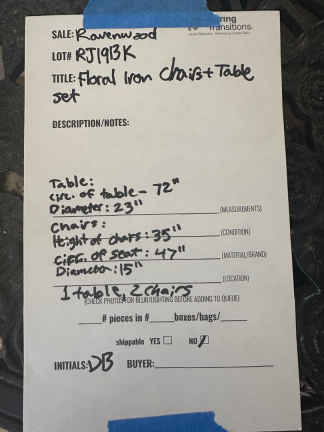 SALE: Ravenwood
ring
Transitions.
LOT# RJ19BK
TITLE: Floral Iron Chairs + Table
set
DESCRIPTION/NOTES:
Table:
circ. of table - 72"
Diameter: 23" (MEASUREMENTS)
Chairs:
Height of chars: 35" (CONDITION)
Circ. of seat: 47" (MATERIAL/BRAND)
Diameter: 15" (LOCATION)
1 table, 2 chairs
(CHECK PHOTOS FOR BLUR/LIGHTING BEFORE ADDING TO QUEUE)
____# pieces in #____boxes/bags/____
shippable YES ☐ NO ☑
INITIALS: DB BUYER: